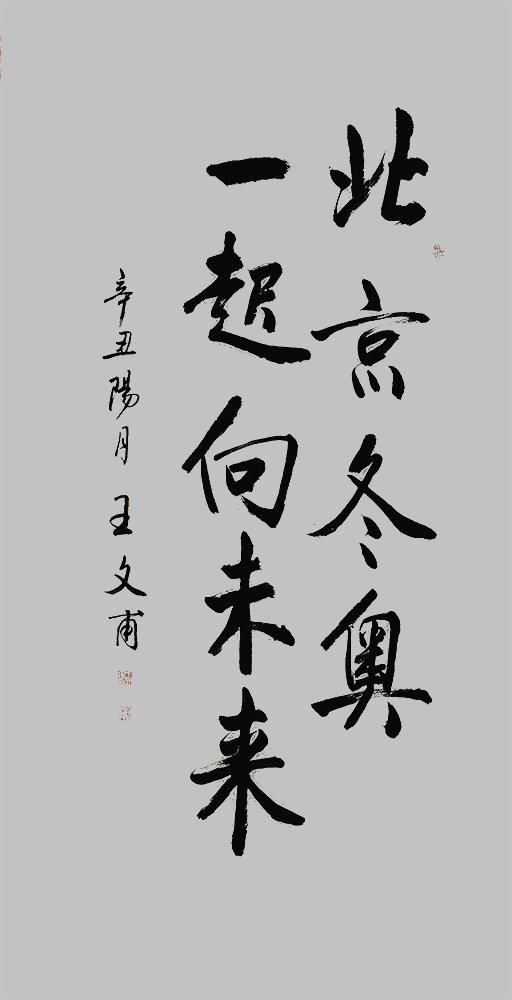 北京冬奥
一起向未来
辛丑陽月 王文甫